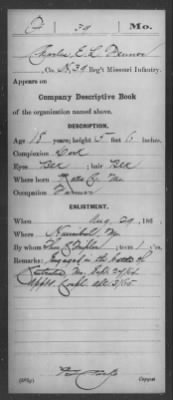 D 39 Mo.
Charles E. L. Dennon
, Co. K, 39 Reg't Missouri Infantry.
Appears on
Company Descriptive Book
of the organization named above.
DESCRIPTION.
Age 18 years; height 5 feet 6 inches.
Complexion Dark
Eyes Blk ; hair Blk
Where born Ralls Co. Mo
Occupation Farmer
ENLISTMENT.
When Aug 29, 186
Where Hannibal, Mo
By whom ; term 1 y'rs.
Remarks: Engaged in the battle of
Centralia, Mo. Sept. 27/64
Appt. Corpl.
Copyist.